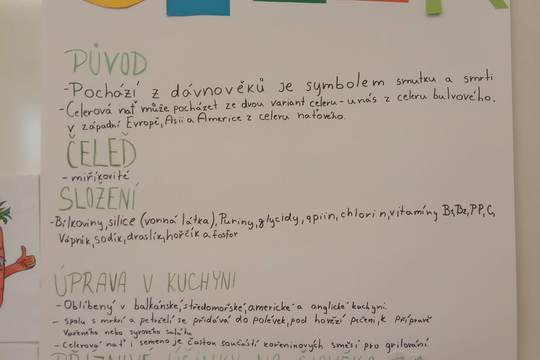 PŮVOD
- Pochází z dávnověků je symbolem smutku a smrti
- Celerová nať může pocházet ze dvou variant celeru - u nás z celeru bulvového.
v západní Evropě, Asii a Americe z celeru naťového.
ČELEĎ
- miříkovité
SLOŽENÍ
- Bílkoviny, silice (vonná látka), Puriny, glycidy, apiin, chlorin, vitamíny B1, B2, PP, C,
Vápník, sodík, draslík, hořčík a fosfor
ÚPRAVA V KUCHYNI
- Oblíbený v balkánské, středomořské, americké a anglické kuchyni.
- spolu s mrkví a petrželí se přidává do polévek, pod hovězí pečeni, k přípravě
Vařeného nebo syrového salátu
- Celerová nať i semeno je častou součástí kořeninových směsí pro grilování